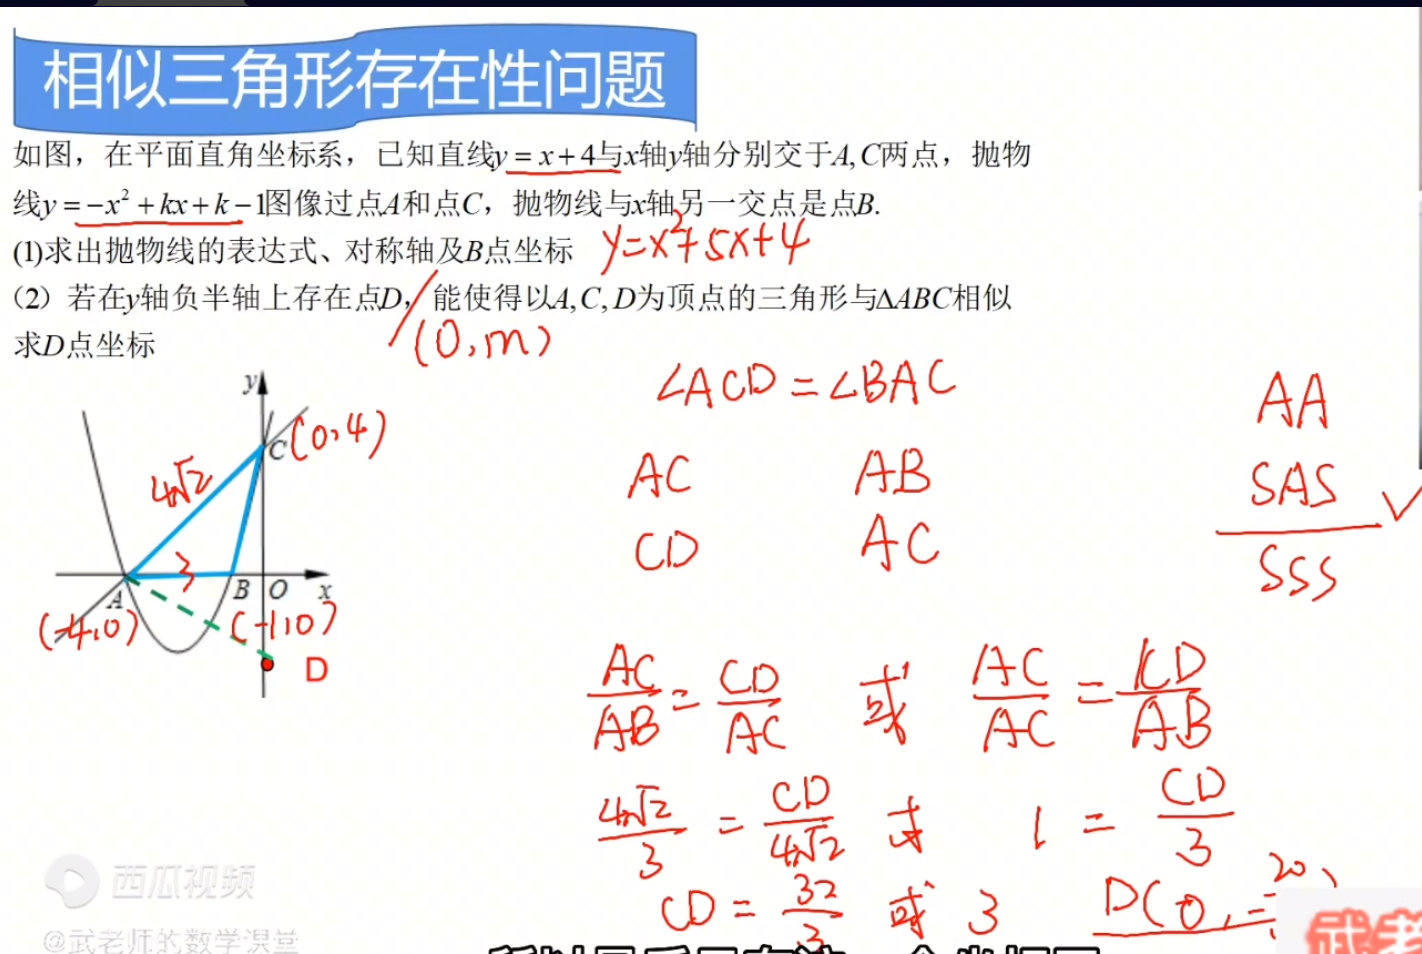 相似三角形存在性问题
如图，在平面直角坐标系，已知直线y=x+4与x轴y轴分别交于A,C两点，抛物
线y=-x²+kx+k-1图像过点A和点C，抛物线与x轴另一交点是点B.
(1)求出抛物线的表达式、对称轴及B点坐标
y=x²+5x+4
（2）若在y轴负半轴上存在点D，能使得以A,C,D为顶点的三角形与ΔABC相似
求D点坐标
(0,m)
y
C (0,4)
4√2
3
A B O x
(-4,0) (-1,0)
D
∠ACD=∠BAC
AC AB
CD AC
AA
SAS ✓
SSS
AC/AB = CD/AC 或 AC/AC = CD/AB
4√2/3 = CD/4√2 或 1 = CD/3
CD = 32/3 或 3 D(0,-20
西瓜视频
@武老师的数学课堂
武老